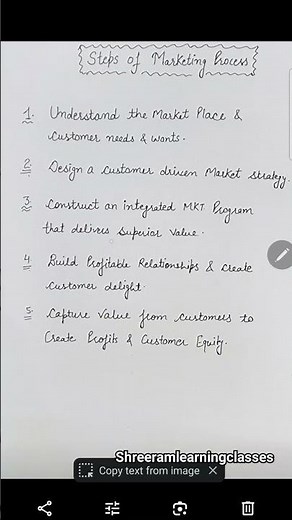 Steps of Marketing Process
1. Understand the Market Place &
Customer needs & wants.
2. Design a customer driven Market Strategy.
3. Construct an integrated MKT. Program
that delivers Superior Value.
4. Build Profitable Relationships & Create
Customer delight.
5. Capture Value from customers to
Create Profits & Customer Equity.
Shreeramlearningclasses
Copy text from image